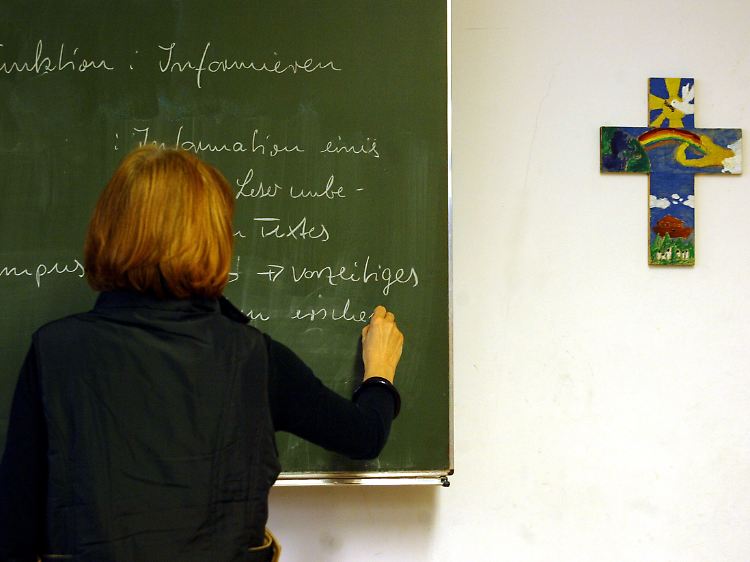 unktion : Informieren
: Information eines
Leser unbe-
n Textes
mpus → vorzeitiges
n erschei